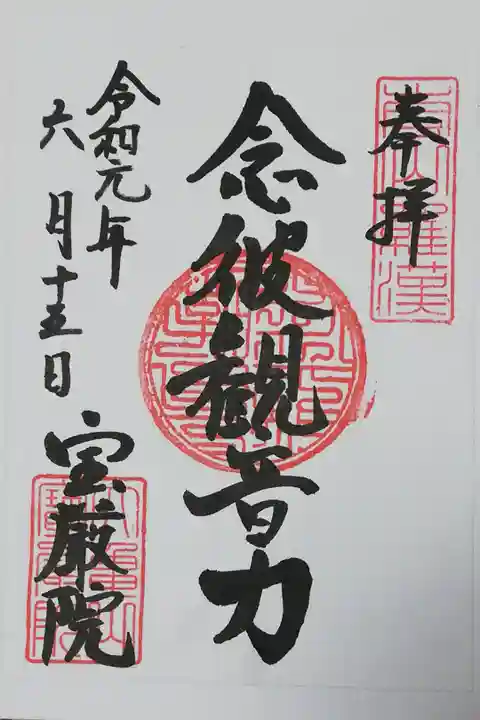 奉拝
念彼観音力
令和元年
六月十五日
宝厳院